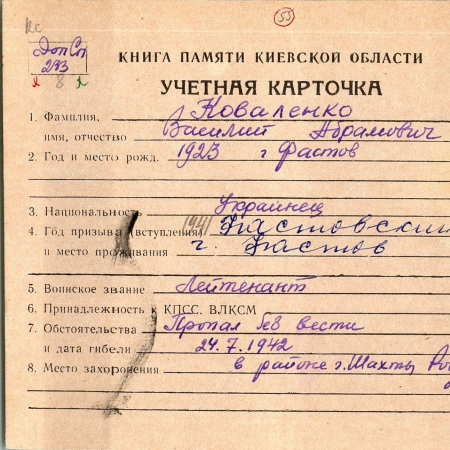 53
кс
Доп Сп
233
8 2
КНИГА ПАМЯТИ КИЕВСКОЙ ОБЛАСТИ
УЧЕТНАЯ КАРТОЧКА
1. Фамилия, Коваленко
имя, отчество Василий Абрамович
2. Год и место рожд. 1923 г Фастов
3. Национальность Украинец
4. Год призыва (вступления) 1941 Фастовский
и место проживания г. Фастов
5. Воинское звание Лейтенант
6. Принадлежность к КПСС. ВЛКСМ
7. Обстоятельства Пропал без вести
и дата гибели 24.7.1942
8. Место захоронения в районе г. Шахты